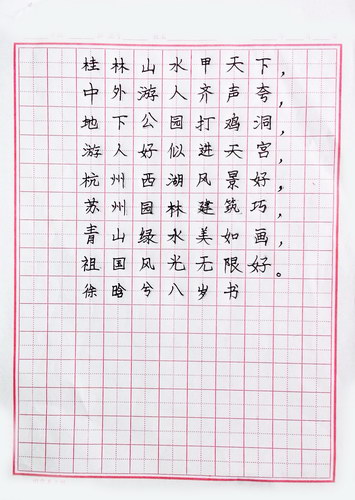 桂林山水甲天下，
中外游人齐声夸，
地下公园打鸡洞，
游人好似进天宫，
杭州西湖风景好，
苏州园林建筑巧，
青山绿水美如画，
祖国风光无限好。
徐晗兮八岁书